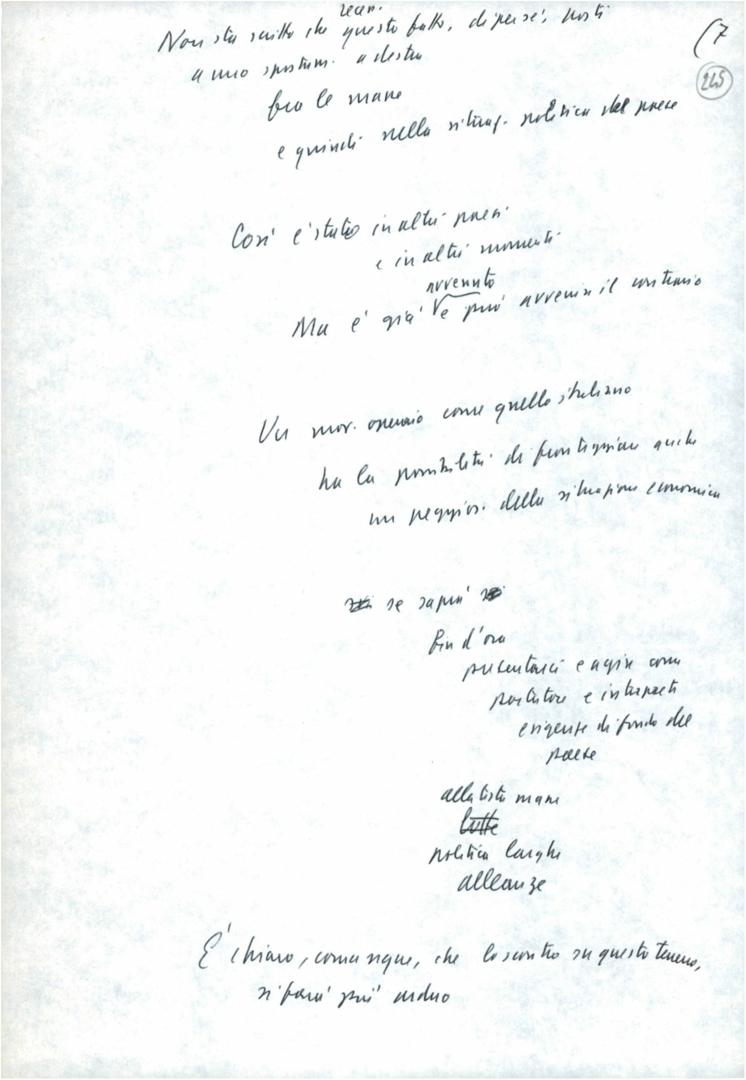 recess.
Non sta scritto che questo fatto, di per sé, porti
(7
245
a uno spostam. a destra
fra le masse
e quindi nella situaz. politica del paese
Così è stato in altri paesi
e in altri momenti
avvenuto
Ma è già e può avvenire il contrario
Un mov. operaio come quello italiano
ha la possibilità di fronteggiare anche
un peggior. della situazione economica
se saprà
fin d'ora
presentarsi e agire come
portatore e interprete
esigenze di fondo del
paese
alla testa masse
lotte
politica larghe
alleanze
E' chiaro, comunque, che lo scontro su questo terreno,
si farà più arduo